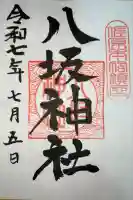 八坂神社
令和七年七月五日